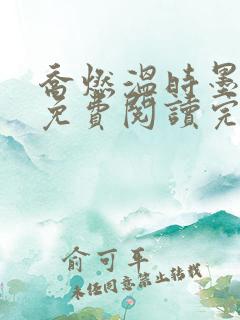 喬燃溫時墨
免費閱讀完
俞可平
未经同意禁止转载